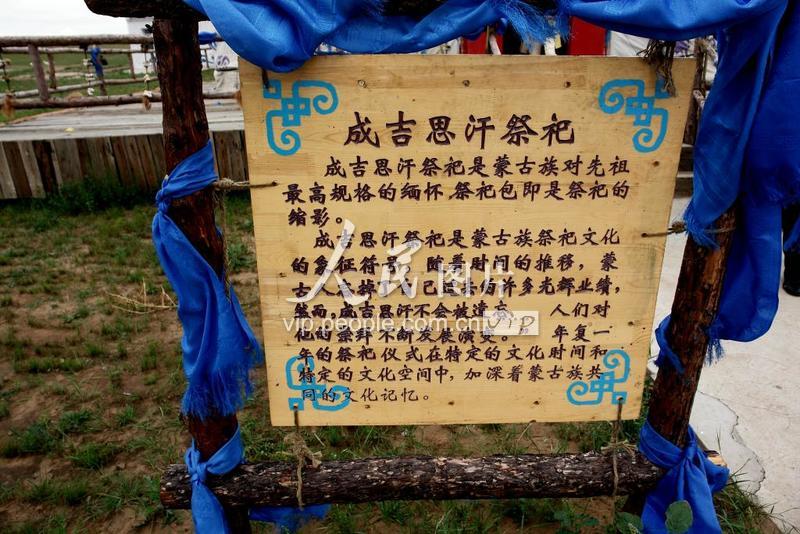 成吉思汗祭祀
成吉思汗祭祀是蒙古族对先祖
最高规格的缅怀,祭祀包即是祭祀的
缩影。
成吉思汗祭祀是蒙古族祭祀文化
的象征符号,随着时间的推移,蒙
古人 掉了 己过去的许多光辉业绩,
然而,成吉思汗不会被遗 人们对
他的崇拜不断发展演变。 年复一
年的祭祀仪式在特定的文化时间和
特定的文化空间中,加深着蒙古族共
同的文化记忆。
人民图片
vip.people.com.cn
VIP